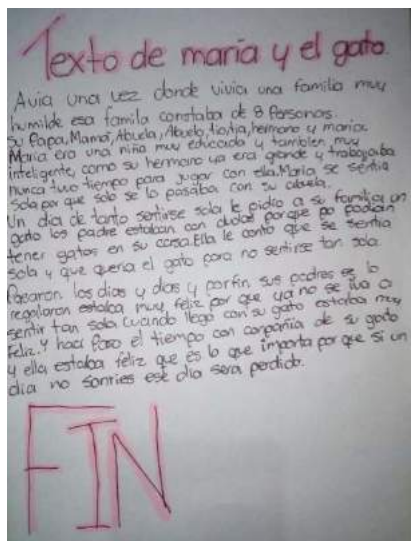 Texto de maria y el gato.
Avia una vez donde vivia una familia muy
humilde esa famila constaba de 8 Personas.
su Papa, Mama, Abuela, Abuelo, tio, tia, hermano y maria.
Maria era una niña muy educada y tambien muy
inteligente, como su hermano ya era grande y trabajaba
nunca tuvo tiempo para jugar con ella. Maria se sentia
Sola por que solo se lo pasaba con su abuela.
Un dia de tanto sentirse sola le pidio a su familia un
gato los padre estaban con dudas porque no podian
tener gatos en su casa. Ella le conto que se sentia
sola y que queria el gato para no sentirse tan sola.
Pasaron los dias y dias y porfin sus padres se lo
regalaron estaba muy feliz por que ya no se iva a
sentir tan sola cuando llego con su gato estaba muy
Feliz. Y haci Paso el tiempo con conpañia de su gato
y ella estaba feliz que es lo que importa por que si un
dia no sonries ese dia sera perdido.
FIN